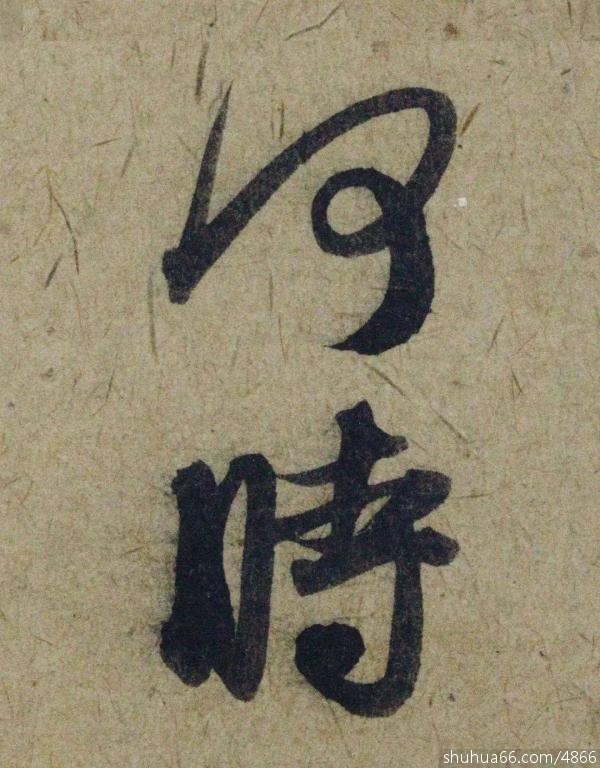 何時
shuhua66.com/4866